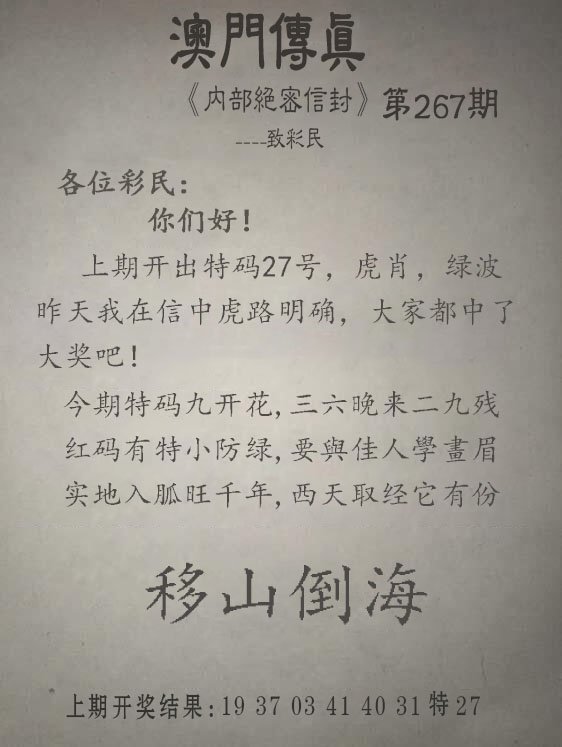 澳門傳眞
《内部絕密信封》第267期
----致彩民
各位彩民：
你们好！
上期开出特码27号，虎肖，绿波
昨天我在信中虎路明确，大家都中了
大奖吧！
今期特码九开花，三六晚来二九残
红码有特小防绿，要與佳人學畫眉
实地入胍旺千年，西天取经它有份
移山倒海
上期开奖结果：19 37 03 41 40 31 特 27